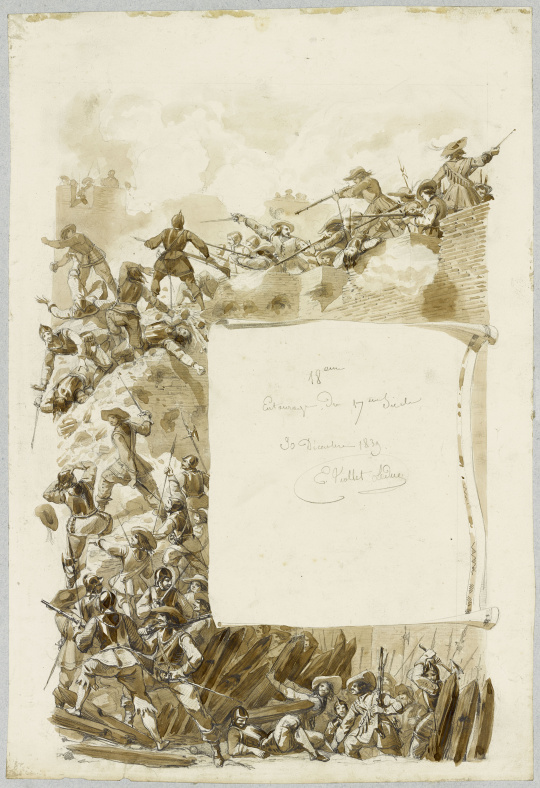 18eme
du 17eme Siècle
30 Décembre 1839.
E Viollet Leduc